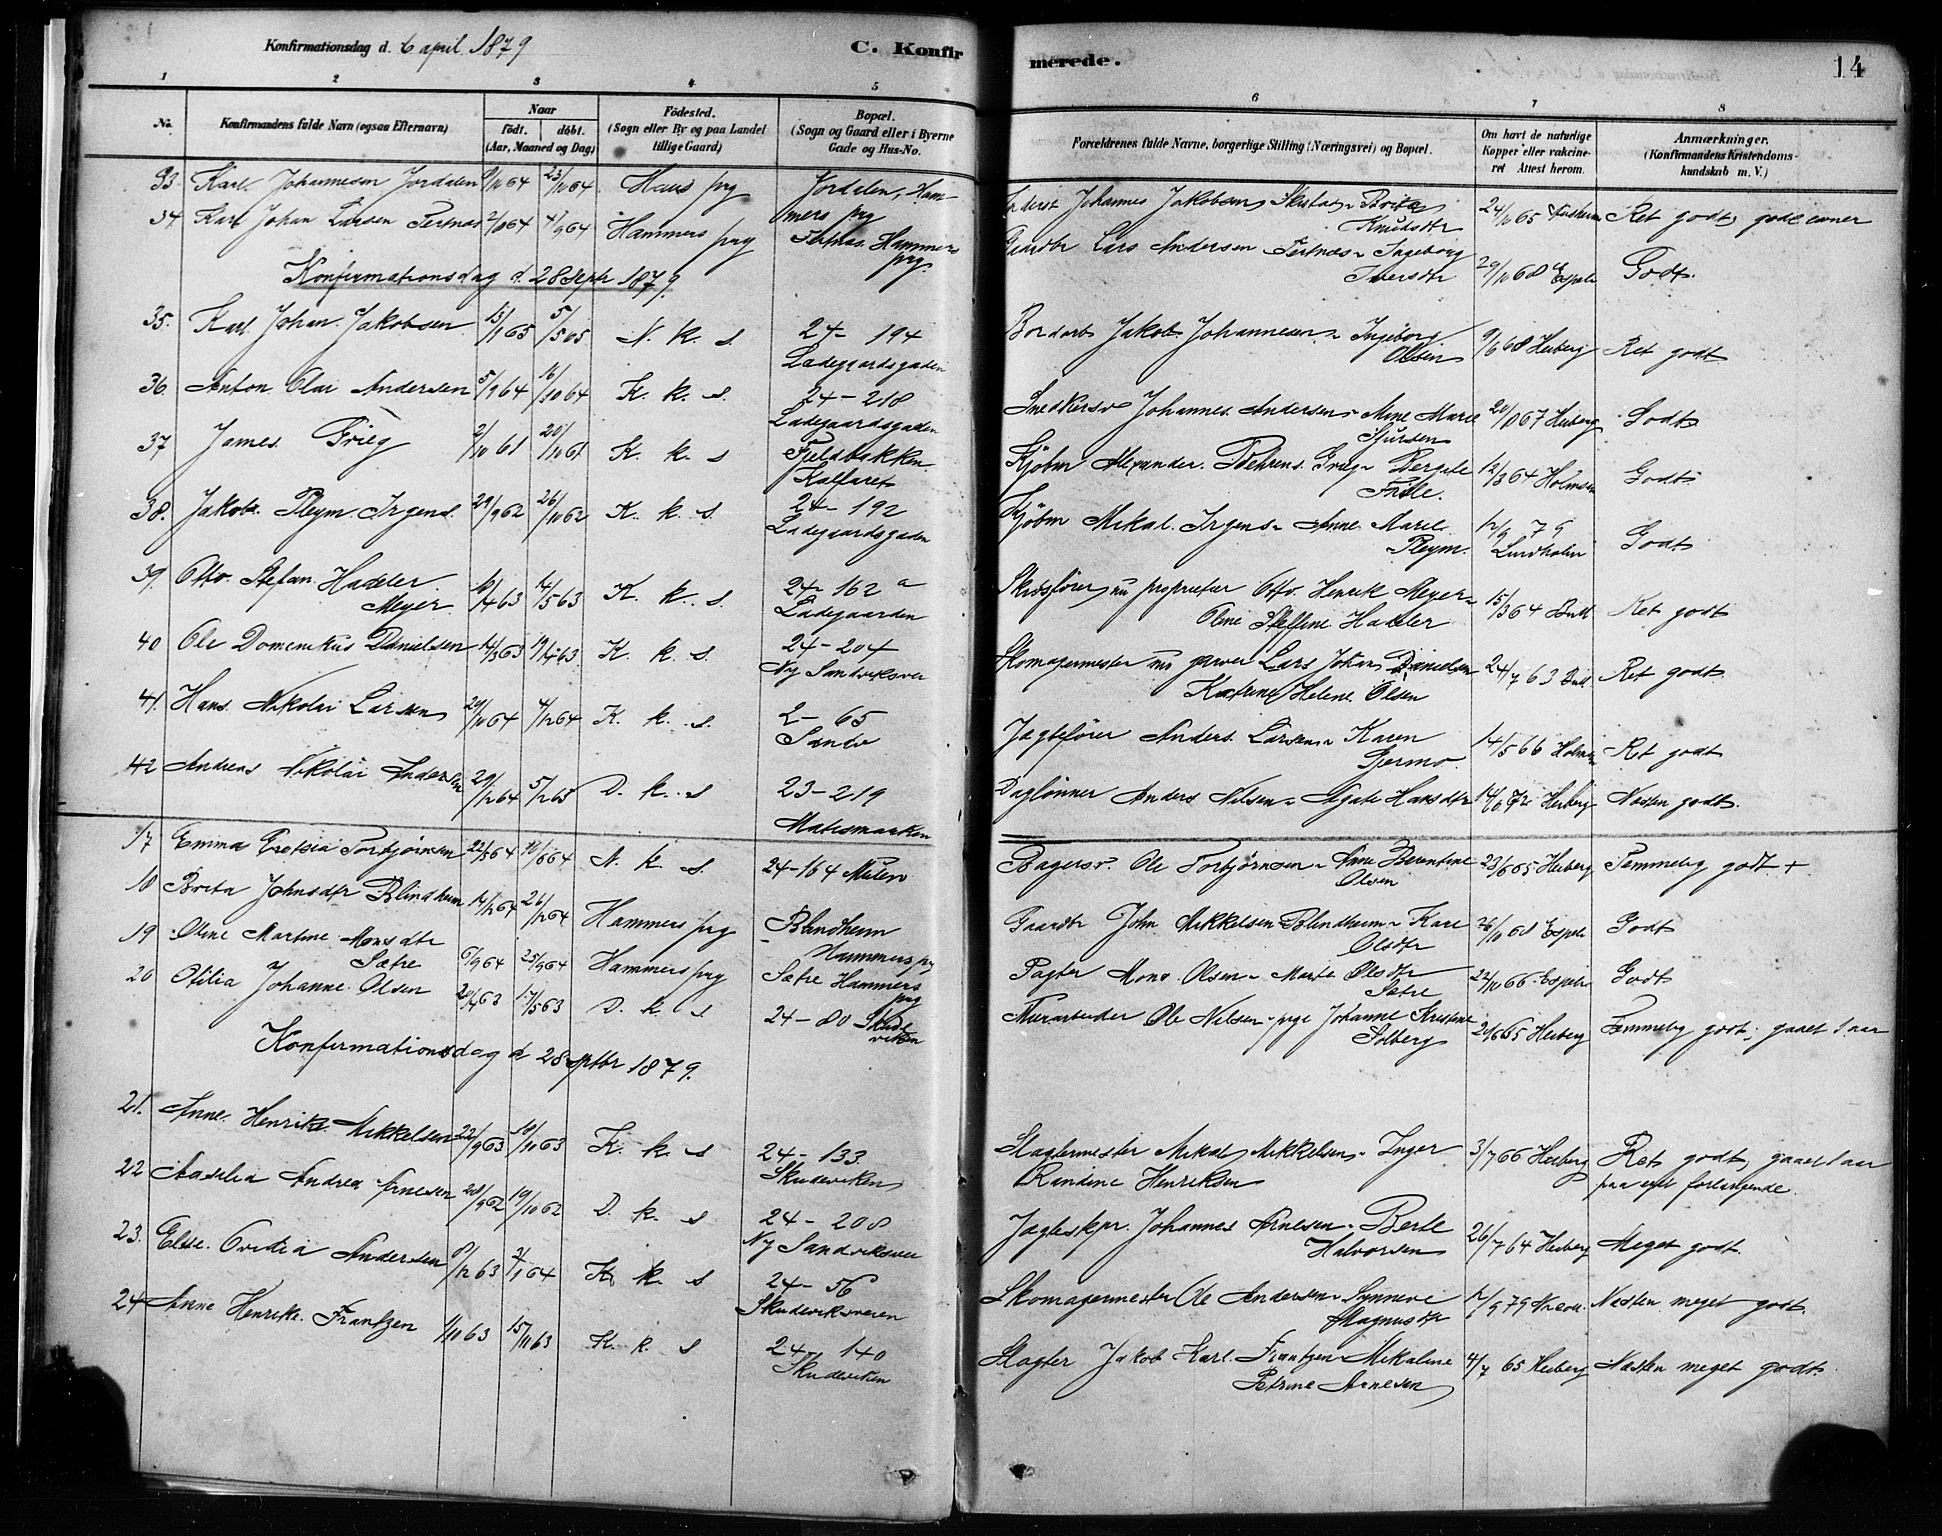 Konfirmationsdag d. 6 april 1879
C. Konfirmerede.
14
1 2 3 4 5 6 7 8
No. | Konfirmandens fulde Navn (ogsaa Efternavn) | Naar født. døbt. (Aar, Maaned og Dag) | Fødested. (Sogn eller By og paa Landet tillige Gaard) | Bopæl. (Sogn og Gaard eller i Byerne Gade og Hus-No. | Forældrenes fulde Navne, borgerlige Stilling (Næringsvei) og Bopæl. | Om havt de naturlige Kopper eller vakcineret Attest herom. | Anmærkninger. (Konfirmandens Kristendomskundskab m. V.)
33. Karl Johannesen Jordalen 23/10 64 Haus prg Jordalen, Hammers prg Johannes Jakobsen Brita Knudsdtr 24/10 65 Ret godt, gode evner
34. Karl Johan Larsen Tertnæs 4/9 64 Hammers prg Tertnæs Hammers prg. Gaardbr Lars Andersen Tertnæs Ingeborg Iversdtr 29/10 68 Espel. Godt.
Konfirmationsdag d. 28 septr 1879.
35. Karl Johan Jakobsen 15/1 65 5/5 65 N. k. s. 24 - 194 Ladegaardsgaden Jakob Johannesen Ingeborg Olsen 9/6 68 Heiberg Ret godt
36. Anton Olai Andersen 5/9 64 16/10 64 K. k. s. 24 - 218 Ladegaardsgaden Snedkersv Johannes Andersen Anne Marie Sjursen 20/10 67 Heiberg Godt
37 James Grieg 2/10 61 20/11 61 K. k. s Kalfaret Kjøbm Alexander Behrens Grieg Bergete Friele. 12/3 64 Holmsen Godt
38. Jakob Pleym Irgens. 29/9 62 26/10 62 K. k. s. 24 - 192 Ladegaardsgaden Kjøbm Mikal Irgens Anne Marie Pleym. 12/9 79 Lindholm Godt
39. Otto Stefan Hadeler Meyer 14/5 63 K. k. s. 24 - 162 a Ladegaarden Skibsfører nu proprietær Otto Henrik Meyer Oline Steffine Hadeler 15/3 64 Bull Ret godt
40 Ole Domenikus Danielsen 14/3 63 19/4 63 K. k. s. 24 - 204 Ny Sandviksvei Skomagermester nu garver Lars Johan Danielsen Katrine Helene Olsen 24/7 63 Bull Ret godt
41. Hans Nikolai Larsen 29/10 64 4/12 64 K. k. s. 2 - 65 Sandv Jagtefører Anders Larsen Karen Gjermo. 14/5 66 Holmsen Ret godt
42 Andreas Nikolai Andersen 29/12 64 5/2 65 D. k. s 23 - 219 Daglønner Anders Nilsen Agate Hansdtr Heiberg Næsten godt.
17 Emma Torbjørnsen 22/5 64 N. k. s. 24 - 164 Mulen Bagersv. Ole Torbjørnsen Anne Berentine Olsen 23/6 65 Heiberg Temmelig godt +
18 Brita Johnsdtr Blindheim 14/12 64 26/12 64 Hammers prg Blindheim Hammers prg Gaardbr John Mikkelsen Blindheim Kari Olsdtr 26/10 68 Espel. Godt
19 Oline Martine Monsdtr Sætre 6/9 64 25/9 64 Hammers prg Sætre Hammers prg Pagter Mons Olsen Marte Olsdtr Sætre 22/10 66 Espel. Godt
20 Otilia Johanne Olsen 20/4 63 17/5 63 D. k. s 24 - 80 Skudeviken Murarbeider Ole Nilsen Johanne Kristine Solberg Heiberg Temmelig godt, gaaet 1 aar
Konfirmationsdag d 28 septbr 1879.
21. Anne Henrike Mikkelsen 22/9 63 K. k. s 24 - 133 Skudeviken Slagtermester Mikal Mikkelsen Inger Randine Henriksen 3/7 66 Heiberg Ret godt, gaaet 1 aar paa eget forlangende.
22 Aasilia Andrea Arnesen 28/9 62 19/10 62 D. k. s 24 - 208 Ny Sandviksvei Jagteskpr. Johannes Arnesen Berte Halvorsen 26/7 64 Heiberg Meget godt.
23. Else Ovidia Andersen K k s 24 - 56 Skudeviksveien Skomagermester Ole Andersen Synneve Magnusdtr Næsten meget godt
24 Anne Henrike Frantzen 1/10 63 15/11 63 K. k. s 24 - 140 Skudeviken Slagter Jakob Karl Frantzen Mikaline Petrine Arnesen 4/7 65 Heiberg Næsten meget godt.